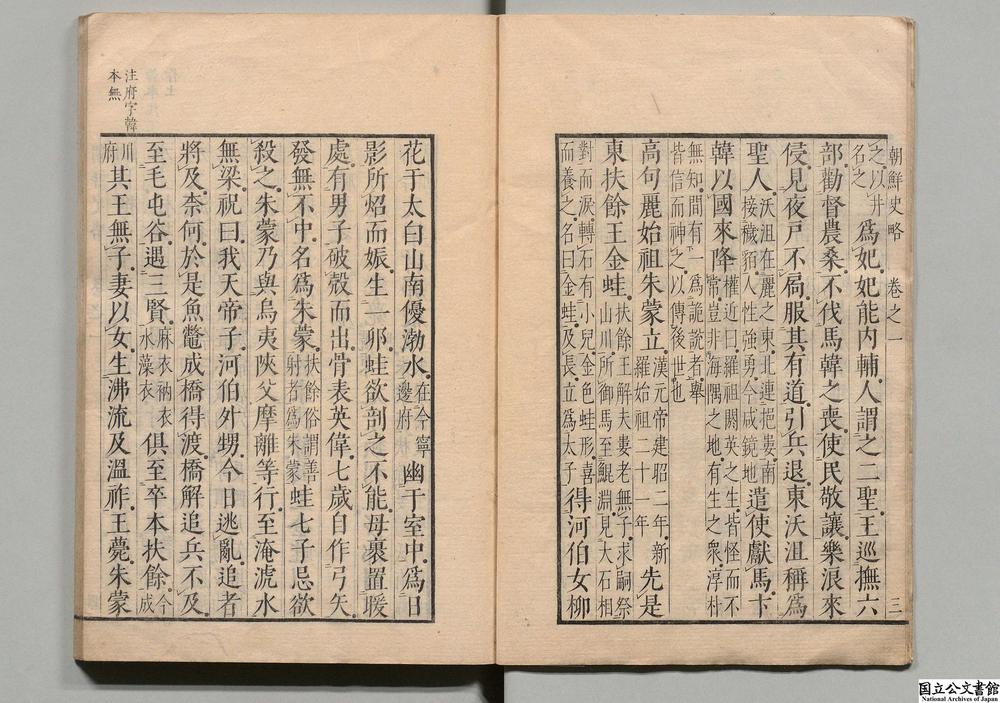 朝鮮史略 卷之一 三
之以井名之爲妃妃能內輔人謂之二聖王巡撫六
部勸督農桑不伐馬韓之喪使民敬讓樂浪來
侵見夜戸不扃服其有道引兵退東沃沮稱爲
聖人沃沮在麗之東北連挹婁南接穢貊人性強勇今咸鏡地遣使獻馬卞
韓以國來降權近曰羅祖閼英之生皆怪而不常豈非海隅之地有生之衆淳朴
無知間有一爲詭說者擧皆信而神之以傳後世也
高句麗始祖朱蒙立漢元帝建昭二年新羅始祖二十一年先是
東扶餘王金蛙扶餘王解夫婁老無子求嗣祭山川所御馬至鯤淵見大石相
對而淚轉石有小兒金色蛙形喜而養之名曰金蛙及長立爲太子得河伯女柳
花于太白山南優渤水在今寧邊府幽于室中爲日
影所炤而娠生一卵蛙欲剖之不能母裹置暖
處有男子破殼而出骨表英偉七歲自作弓矢
發無不中名爲朱蒙扶餘俗謂善射者爲朱蒙蛙七子忌欲
殺之朱蒙乃與烏夷陜父摩離等行至淹淲水
無梁祝曰我天帝子河伯外甥今日逃亂追者
將及柰何於是魚鼈成橋得渡橋解追兵不及
至毛屯谷遇三賢麻衣衲衣水藻衣俱至卒本扶餘今成
川府其王無子妻以女生沸流及溫祚王薨朱蒙
注府字韓
本無
国立公文書館
National Archives of Japan